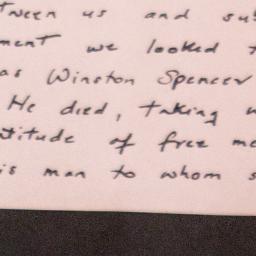 tween us and su
ment we looked t
as Winston Spencer
He died, taking
titude of free me
is man to whom s